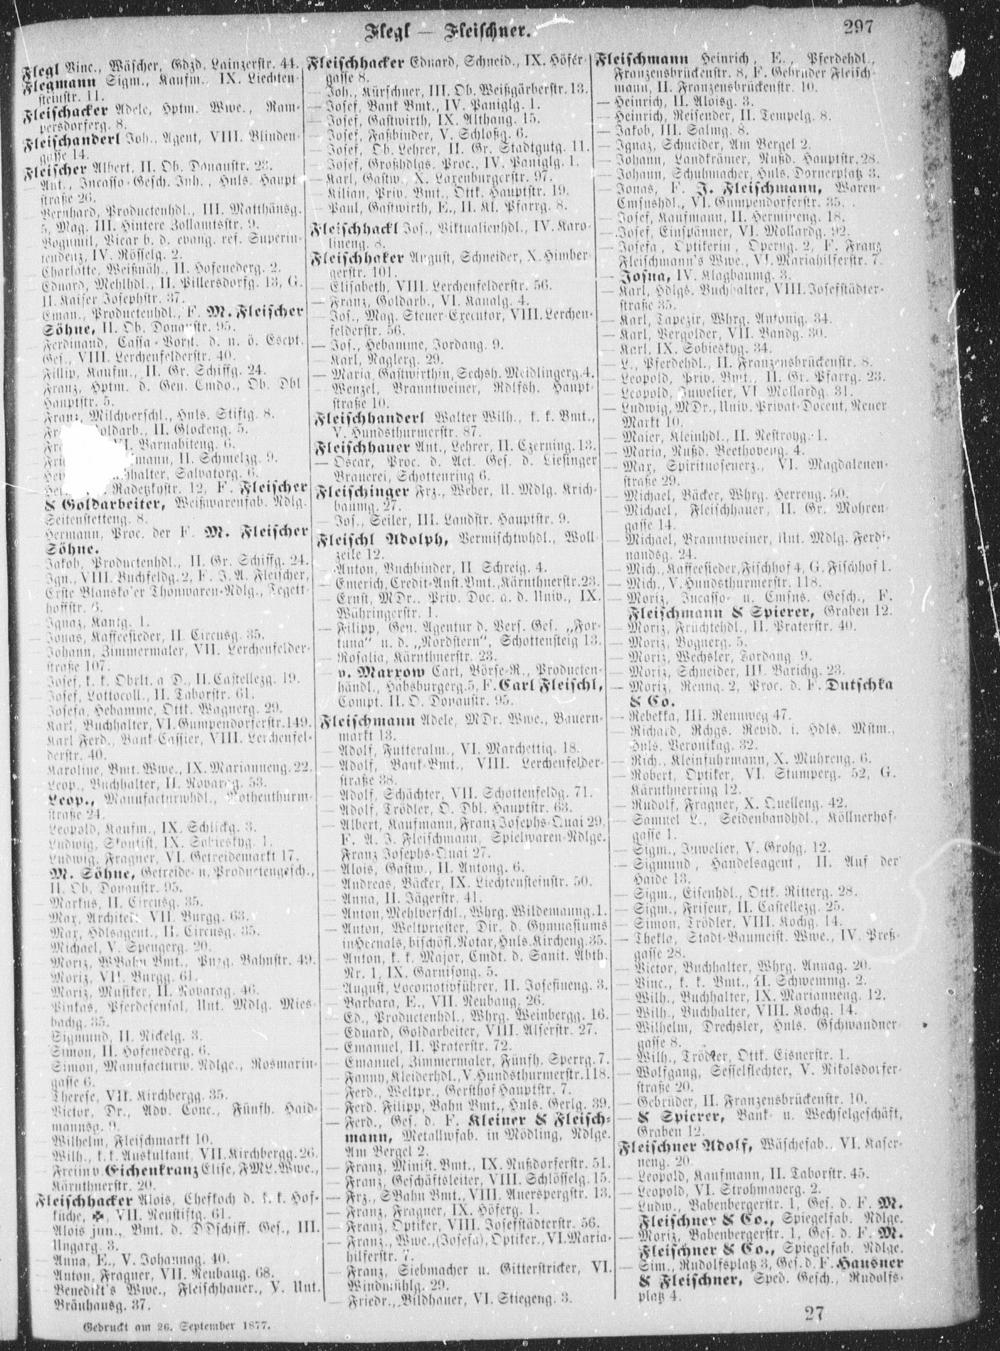 Flegl — Fleischner.
297
Flegl Vinc., Wäscher, Ghzd. Lainzerstr. 44.
Flegmann Sigm., Kaufm., IX. Liechten-
steinstr. 11.
Fleischacker Adele, Hptm. Wwe., Ram-
persdorferg. 8.
Fleischanderl Joh., Agent, VIII. Blinden-
gasse 14.
Fleischer Albert, II. Ob. Donaustr. 23.
— Ant., Incasso-Gesch. Inh., Hnls. Haupt-
straße 26.
— Bernhard, Productenhdl., III. Matthäusg.
5, Mag. III. Hintere Zollamtsstr. 9.
— Bogumil, Vicar b. d. evang. ref. Superin-
tendenz, IV. Rösselg. 2.
— Charlotte, Weißnäh., II. Hofenederg. 2.
— Eduard, Mehlhdl., II. Pillersdorfg. 13, G.
II. Kaiser Josephstr. 37.
— Eman., Productenhdl., F. M. Fleischer
Söhne, II. Ob. Donaustr. 95.
— Ferdinand, Cassa-Vorst. d. n. ö. Escpt.
Ges., VIII. Lerchenfelderstr. 40.
— Fillip, Kaufm., II. Gr. Schiffg. 24.
— Franz, Hptm. d. Gen. Cmdo., Ob. Dbl.
Hauptstr. 5.
— Franz, Milchverschl., Hnls. Stiftg. 8.
Goldarb., II. Glockeng. 5.
VI. Barnabiteng. 6.
mann, II. Schmelzg. 9.
halter, Salvatorg. 6.
Radetzkystr. 12, F. Fleischer
& Goldarbeiter, Weißwarenfab. Ndlg.
Seitenstetteng. 8.
— Hermann, Proc. der F. M. Fleischer
Söhne.
— Jakob, Productenhdl., II. Gr. Schiffg. 24.
— Ign., VIII. Buchfeldg. 2, F. J. A. Fleischer,
Erste Blansko'er Thonwaren-Ndlg., Tegett-
hoffstr. 6.
— Ignaz, Kantg. 1.
— Jonas, Kaffeesieder, II. Circusg. 35.
— Johann, Zimmermaler, VII. Lerchenfelder-
straße 107.
— Josef, k. k. Obrlt. a D., II. Castellezg. 19.
— Josef, Lottocoll., II. Taborstr. 61.
— Josefa, Hebamme, Ottk. Wagnerg. 29.
— Karl, Buchhalter, VI. Gumpendorferstr. 149.
— Karl Ferd., Bank-Cassier, VIII. Lerchenfel-
derstr. 40.
— Karoline, Bmt. Wwe., IX. Marianneng. 22.
— Leop., Buchhalter, II. Novarag. 53.
— Leop., Manufacturwhdl., Rothenthurm-
straße 24.
— Leopold, Kaufm., IX. Schlickg. 3.
— Ludwig, Skontist, IX. Sobieskyg. 1.
— Ludwig, Fragner, VI. Getreidemarkt 17.
— M. Söhne, Getreide- u. Productengesch.,
II. Ob. Donaustr. 95.
— Markus, II. Circusg. 35.
— Max, Architekt, VII. Burgg. 63.
— Max, Hdlsagent., II. Circusg. 35.
— Michael, V. Spengerg. 20.
— Moriz, WBahn Bmt., Penzg. Bahnstr. 49.
— Moriz, VII. Burgg. 61.
— Moriz, Musiker, II. Novarag. 46.
— Pinkas, Pferdesensal, Unt. Mdlg. Mies-
bachg. 35.
— Sigmund, II. Nickelg. 3.
— Simon, II. Hofenederg. 6.
— Simon, Manufacturw. Ndlge., Rosmarin-
gasse 6.
— Therese, VII. Kirchbergg. 35.
— Victor, Dr., Adv. Conc., Fünfh. Haid-
mannsg. 9.
— Wilhelm, Fleischmarkt 10.
— Wilh., k. k. Auskultant, VII. Kirchbergg. 26.
— Freiin v. Eichenkranz Elise, FML. Wwe.,
Kärnthnerstr. 20.
Fleischhacker Alois, Chefkoch d. k. k. Hof-
küche, ✠, VII. Neustiftg. 61.
— Alois jun., Bmt. d. DDschiff. Ges., III.
Ungarg. 3.
— Anna, E., V. Johannag. 40.
— Anton, Fragner, VII. Neubaug. 68.
— Benedikt's Wwe., Fleischhauer., V. Unt.
Bräuhausg. 37.
Gedruckt am 26. September 1877.
Fleischhacker Eduard, Schneid., IX. Höfer-
gasse 8.
— Joh., Kürschner, III. Ob. Weißgärberstr. 13.
— Josef, Bank Bmt., IV. Paniglg. 1.
— Josef, Gastwirth, IX. Althang. 15.
— Josef, Faßbinder, V. Schloßg. 6.
— Josef, Ob. Lehrer, II. Gr. Stadtgutg. 11.
— Josef, Großhdlgs. Proc., IV. Paniglg. 1.
— Karl, Gastw., X. Laxenburgerstr. 97.
— Kilian, Priv. Bmt., Ottk. Hauptstr. 19.
— Paul, Gastwirth, E., II. Kl. Pfarrg. 8.
Fleischhackl Jos., Viktualienhdl., IV. Karo-
lineng. 8.
Fleischhaker August, Schneider, X. Himber-
gerstr. 101.
— Elisabeth, VIII. Lerchenfelderstr. 56.
— Franz, Goldarb., VI. Kanalg. 4.
— Jos., Mag. Steuer-Executor, VIII. Lerchen-
felderstr. 56.
— Jos., Hebamme, Jordang. 9.
— Karl, Naglerg. 29.
— Maria, Gastwirthin, Sechsh. Meidlingerg. 4.
— Wenzel, Branntweiner, Rdlfsh. Haupt-
straße 10.
Fleischhanderl Walter Wilh., k. k. Bmt.,
V. Hundsthurmerstr. 87.
Fleischhauer Ant., Lehrer, II. Czerning. 13.
— Oscar, Proc. d. Act. Ges. d. Liesinger
Brauerei, Schottenring 6.
Fleischinger Frz., Weber, U. Mdlg. Krich-
baumg. 27.
— Jos., Seiler, III. Landstr. Hauptstr. 9.
Fleischl Adolph, Vermischtwhdl., Woll-
zeile 12.
— Anton, Buchbinder, II. Schreig. 4.
— Emerich, Credit-Anst. Bmt., Kärnthnerstr. 23.
— Ernst, MDr., Priv. Doc. a. d. Univ., IX.
Währingerstr. 1.
— Filipp, Gen. Agentur d. Vers. Ges. „For-
tuna" u. d. „Nordstern", Schottensteig 13.
— Rosalia, Kärnthnerstr. 23.
— v. Marxow Carl, Börse-R., Producten-
händl., Habsburgerg. 5, F. Carl Fleischl,
Compt. II. O. Donaustr. 95.
Fleischmann Adele, MDr. Wwe., Bauern-
markt 13.
— Adolf, Futteralm., VI. Marchettig. 18.
— Adolf, Bank-Bmt., VIII. Lerchenfelder-
straße 38.
— Adolf, Schächter, VII. Schottenfeldg. 71.
— Adolf, Trödler, O. Dbl. Hauptstr. 63.
— Albert, Kaufmann, Franz Josephs-Quai 29,
F. A. J. Fleischmann, Spielwaren-Ndlge.
Franz Josephs-Quai 27.
— Alois, Gastw., II. Antong. 6.
— Andreas, Bäcker, IX. Liechtensteinstr. 50.
— Anna, II. Jägerstr. 41.
— Anton, Mehlverschl., Whrg. Wildemanng. 1.
— Anton, Weltpriester, Dir. d. Gymnasiums
in Hernals, bischöfl. Notar, Hnls. Kircheng. 35.
— Anton, k. k. Major, Cmdt. d. Sanit. Abth.
Nr. 1, IX. Garnisong. 5.
— August, Locomotivführer, II. Josefineng. 3.
— Barbara, E., VII. Neubaug. 26.
— Ed., Productenhdl., Whrg. Weinbergg. 16.
— Eduard, Goldarbeiter, VIII. Alserstr. 27.
— Emanuel, II. Praterstr. 72.
— Emanuel, Zimmermaler, Fünfh. Sperrg. 7.
— Fanny, Kleiderhdl., V. Hundsthurmerstr. 118.
— Ferd., Weltpr., Gersthof Hauptstr. 7.
— Ferd. Filipp, Bahn Bmt., Hnls. Gerlg. 39.
— Ferd., Ges. d. F. Kleiner & Fleisch-
mann, Metallwfab. in Mödling, Ndlge.
Am Bergel 2.
— Franz, Minist. Bmt., IX. Nußdorferstr. 51.
— Franz, Geschäftsleiter, VIII. Schlösselg. 15.
— Frz., SBahn Bmt., VIII. Auerspergstr. 13.
— Franz, Fragner, IX. Höferg. 1.
— Franz, Optiker, VIII. Josefstädterstr. 56.
— Franz., Wwe., (Josefa), Optiker., VI. Maria-
hilferstr. 7.
— Franz, Siebmacher u. Gitterstricker, VI.
Windmühlg. 29.
— Friedr., Bildhauer, VI. Stiegeng. 3.
Fleischmann Heinrich, E., Pferdehdl.,
Franzensbrückenstr. 8, F. Gebrüder Fleisch-
mann, II. Franzensbrückenstr. 10.
— Heinrich, II. Aloisg. 3.
— Heinrich, Reisender, II. Tempelg. 8.
— Jakob, III. Salmg. 8.
— Ignaz, Schneider, Am Bergel 2.
— Johann, Landkrämer, Nußd. Hauptstr. 28.
— Johann, Schuhmacher, Hnls. Dornerplatz 3.
— Jonas, F. J. Fleischmann, Waren-
Cmsnshdl., VI. Gumpendorferstr. 35.
— Josef, Kaufmann, II. Hermineng. 18.
— Josef, Einspänner, VI. Mollardg. 92.
— Josefa, Optikerin, Operng. 2, F. Franz
Fleischmann's Wwe., VI. Mariahilferstr. 7.
— Josua, IV. Klagbaumg. 3.
— Karl, Hdlgs. Buchhalter, VIII. Josefstädter-
straße 35.
— Karl, Tapezir, Whrg. Antonig. 34.
— Karl, Vergolder, VII. Bandg. 30.
— Karl, IX. Sobieskyg. 34.
— L., Pferdehdl., II. Franzensbrückenstr. 8.
— Leopold, Priv. Bmt., II. Gr. Pfarrg. 23.
— Leopold, Juwelier, VI. Mollardg. 31.
— Ludwig, MDr., Univ. Privat-Docent, Neuer
Markt 10.
— Maier, Kleinhdl., II. Nestroyg. 1.
— Maria, Nußd. Beethoveng. 4.
— Max, Spirituosenerz., VI. Magdalenen-
straße 29.
— Michael, Bäcker, Whrg. Herreng. 50.
— Michael, Fleischhauer, II. Gr. Mohren-
gasse 14.
— Michael, Branntweiner, Unt. Mdlg. Ferdi-
nandsg. 24.
— Mich., Kaffeesieder, Fischhof 4, G. Fischhof 1.
— Mich., V. Hundsthurmerstr. 118.
— Moriz, Incasso- u. Cmsns. Gesch., F.
Fleischmann & Spierer, Graben 12.
— Moriz, Früchtehdl., II. Praterstr. 40.
— Moriz, Bognerg. 5.
— Moriz, Wechsler, Jordang. 9.
— Moriz, Schneider, III. Barichg. 23.
— Moriz, Renng. 2, Proc. d. F. Dutschka
& Co.
— Rebekka, III. Rennweg 47.
— Richard, Rchgs. Revid. i. Hdls. Mstm.,
Hnls. Veronikag. 32.
— Rich., Kleinfuhrmann, X. Muhreng. 6.
— Robert, Optiker, VI. Stumperg. 52, G.
Kärnthnerring 12.
— Rudolf, Fragner, X. Quelleng. 42.
— Samuel L., Seidenbandhdl., Köllnerhof-
gasse 1.
— Sigm., Juwelier, V. Grohg. 12.
— Sigmund, Handelsagent, II. Auf der
Haide 13.
— Sigm., Eisenhdl., Ottk. Ritterg. 28.
— Sigm., Friseur, II. Castellezg. 25.
— Simon, Trödler, VIII. Kochg. 14.
— Thekla, Stadt-Baumeist. Wwe., IV. Preß-
gasse 28.
— Victor, Buchhalter, Whrg. Annag. 20.
— Vinc., k. k. Bmt., II. Schwemmg. 2.
— Wilh., Buchhalter, IX. Marianneng. 12.
— Wilh., Buchhalter, VIII. Kochg. 14.
— Wilhelm, Drechsler, Hnls. Gschwandner-
gasse 8.
— Wilh., Trödler, Ottk. Eisnerstr. 1.
— Wolfgang, Sesselflechter, V. Nikolsdorfer-
straße 20.
— Gebrüder, II. Franzensbrückenstr. 10.
— & Spierer, Bank- u. Wechselgeschäft,
Graben 12.
Fleischner Adolf, Wäschefab., VI. Kaser-
neng. 20.
— Leopold, Kaufmann, II. Taborstr. 45.
— Leopold, VI. Strohmayerg. 2.
— Ludw., Babenbergerstr. 1, Ges. d. F. M.
Fleischner & Co., Spiegelfab. Ndlge.
— Moriz, Babenbergerstr. 1, Ges. d. F. M.
Fleischner & Co., Spiegelfab. Ndlge.
— Sim., Rudolfsplatz 3, Ges. d. F. Hausner
& Fleischner, Sped. Gesch., Rudolfs-
platz 4.
27